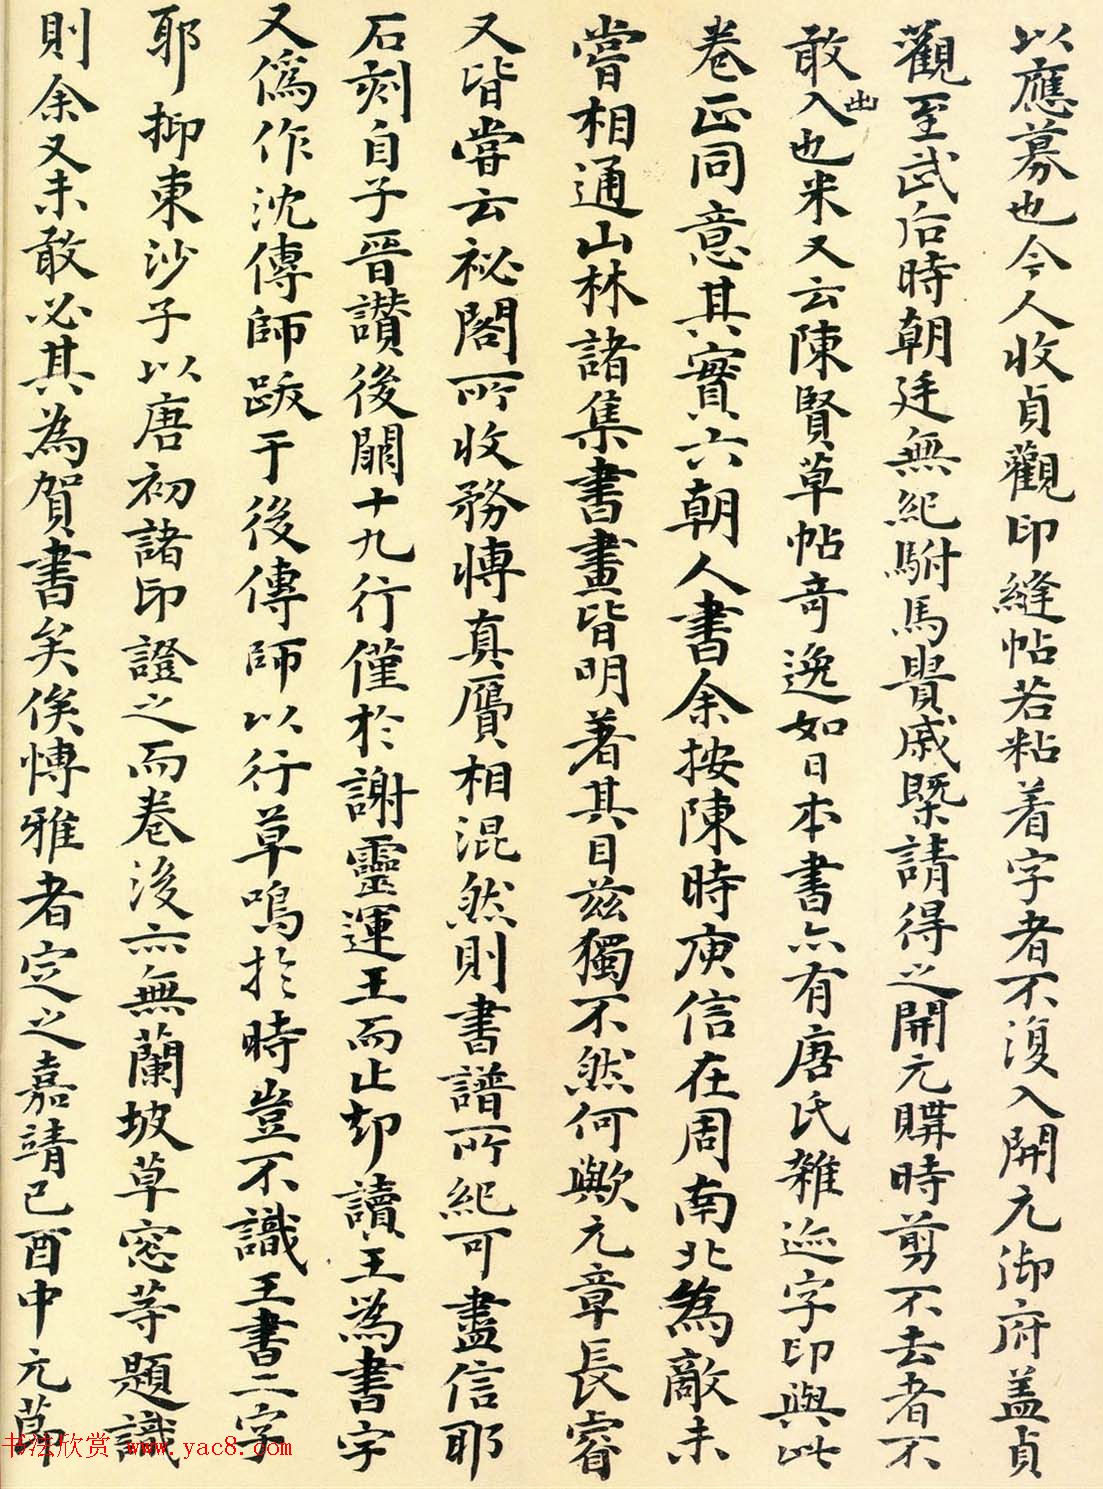 以應募也今人收貞觀印縫帖若粘着字者不復入開元御府蓋貞
觀至武后時朝廷無紀駙馬貴戚槩請得之開元購時剪不去者不
敢入出也米又云陳賢草帖奇逸如日本書亦有唐氏雜迹字印與此
卷正同意其實六朝人書余按陳時庾信在周南北為敵未
嘗相通山林諸集書畫皆明著其目茲獨不然何歟元章長睿
又皆嘗云祕閣所收務愽真贗相混然則書譜所紀可盡信耶
石刻自子晉讃後闕十九行僅於謝靈運王而止却讀王為書字
又偽作沈傳師跋于後傳師以行草鳴於時豈不識王書二字
耶抑東沙子以唐初諸印證之而卷後亦無蘭坡草窓等題識
則余又未敢必其為賀書矣俟愽雅者定之嘉靖己酉中元節
书法欣赏 www.yac8.com